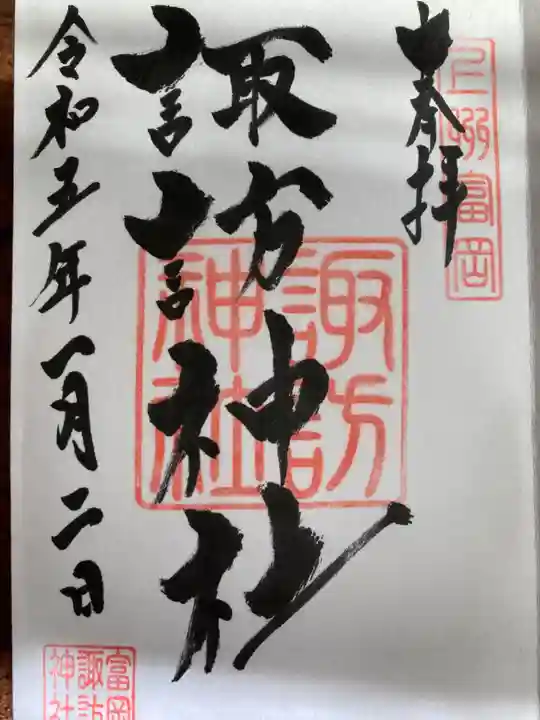 奉拝
上州富岡
諏訪神社
諏訪神社
令和五年一月二日
富岡
諏訪
神社